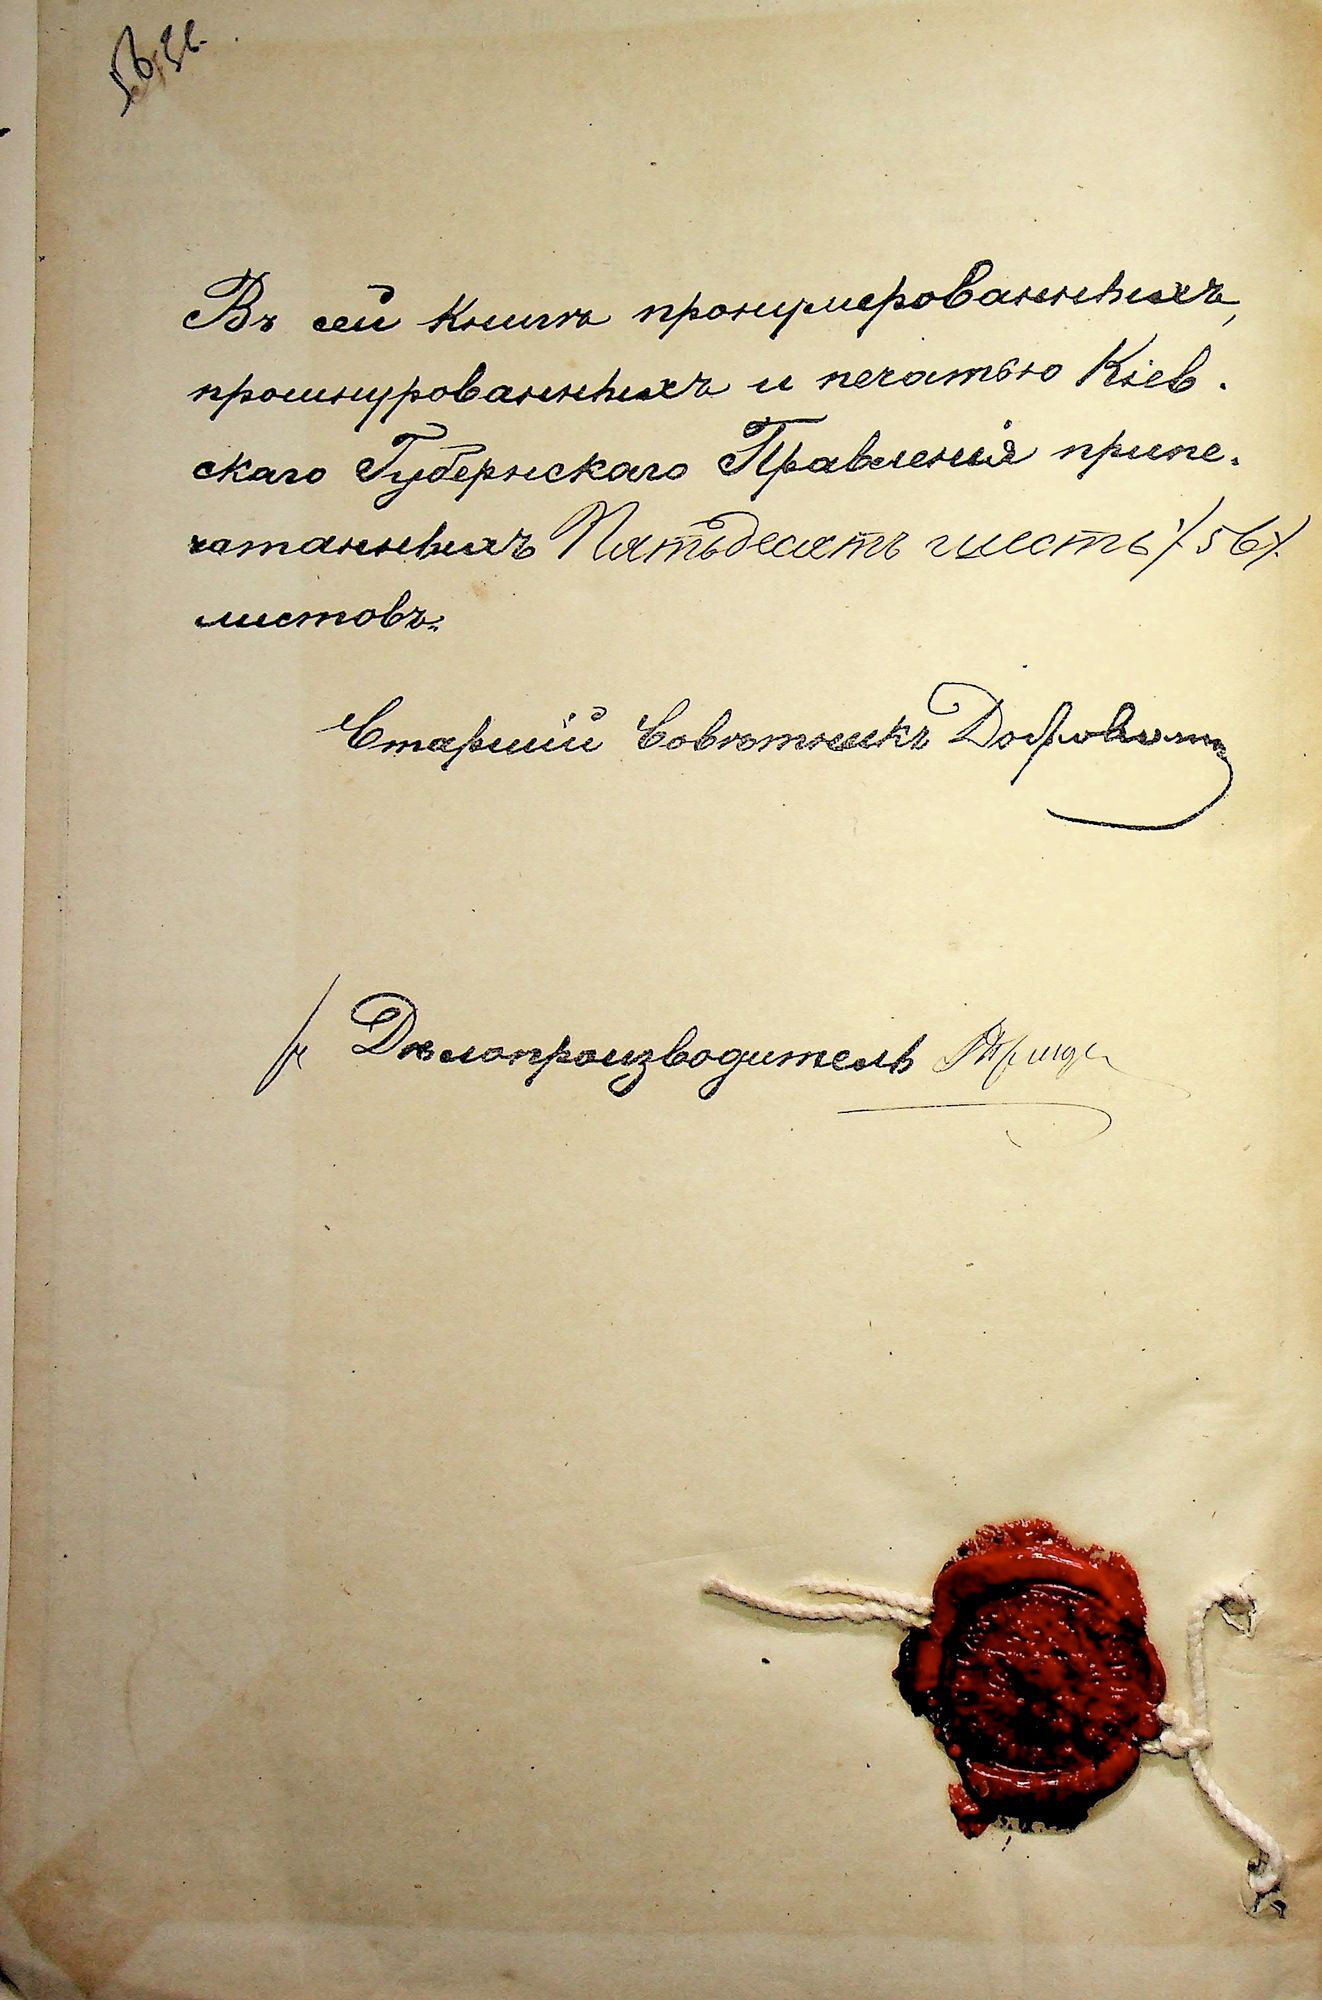 Въ сей книгѣ пронумерованныхъ,
прошнурованныхъ и печатью Кіев-
скаго Губернскаго Правленія припе-
чатанныхъ Пятьдесятъ шесть /56/.
листовъ.
Старшій Совѣтникъ
Дѣлопроизводитель